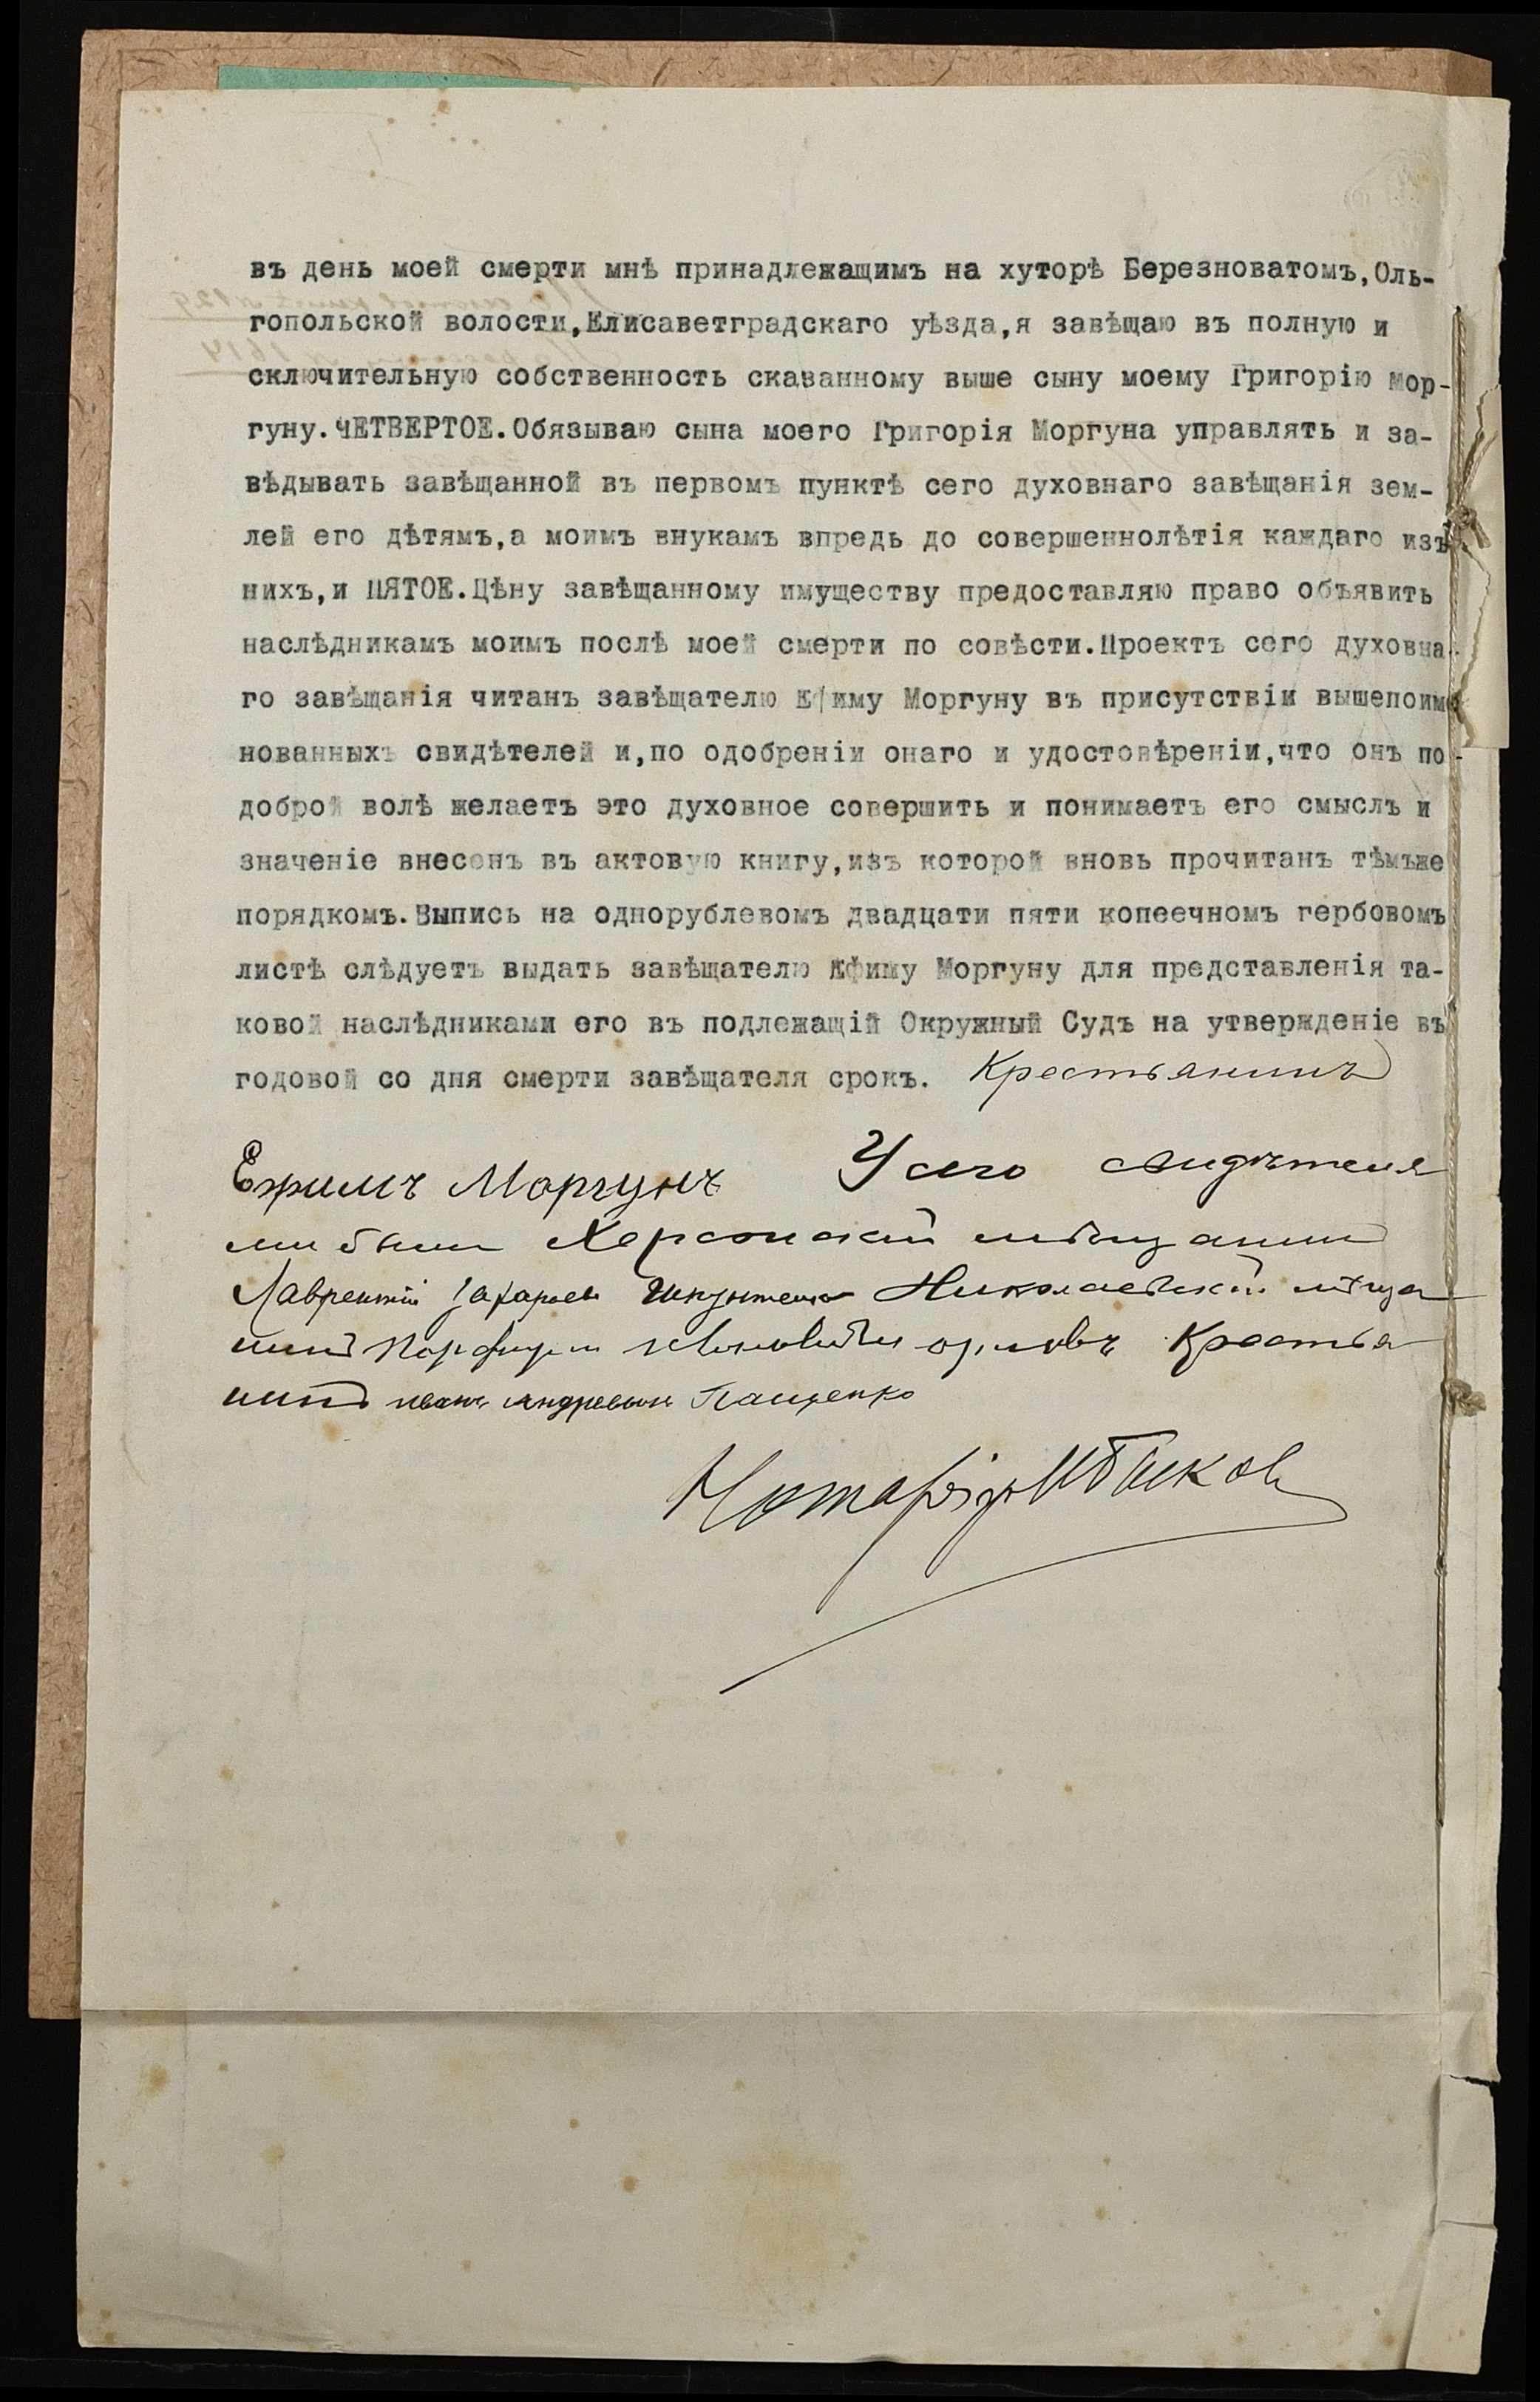 въ день моей смерти мнѣ принадлежащимъ на хуторѣ Березноватомъ,Оль-
гопольской волости,Елисаветградскаго уѣзда,я завѣщаю въ полную и
сключительную собственность сказанному выше сыну моему Григорію Мор-
гуну.ЧЕТВЕРТОЕ.Обязываю сына моего Григорія Моргуна управлять и за-
вѣдывать завѣщанной въ первомъ пунктѣ сего духовнаго завѣщанія зем-
лей его дѣтямъ,а моимъ внукамъ впредь до совершеннолѣтія каждаго изъ
нихъ,и ПЯТОЕ.Цѣну завѣщанному имуществу предоставляю право объявить
наслѣдникамъ моимъ послѣ моей смерти по совѣсти.Проектъ сего духовна-
го завѣщанія читанъ завѣщателю Ефиму Моргуну въ присутствіи вышепоиме
нованныхъ свидѣтелей и,по одобреніи онаго и удостовѣреніи,что онъ по-
доброй волѣ желаетъ это духовное совершить и понимаетъ его смыслъ и
значеніе внесенъ въ актовую книгу,изъ которой вновь прочитанъ тѣмъже
порядкомъ.Выпись на однорублевомъ двадцати пяти копеечномъ гербовомъ
листѣ слѣдуетъ выдать завѣщателю Ефиму Моргуну для представленія та-
ковой наслѣдниками его въ подлежащій Окружный Судъ на утвержденіе въ
годовой со дня смерти завѣщателя срокъ. Крестьянинъ
Ефимъ Моргунъ У сего свидѣтеля
ми были Херсонскій мѣщанинъ
Лаврентій Захарьевъ Николаевскій мѣща
нинъ Орловъ Крестья
нинъ Иванъ Андреевичъ Пащенко
Нотаріусъ